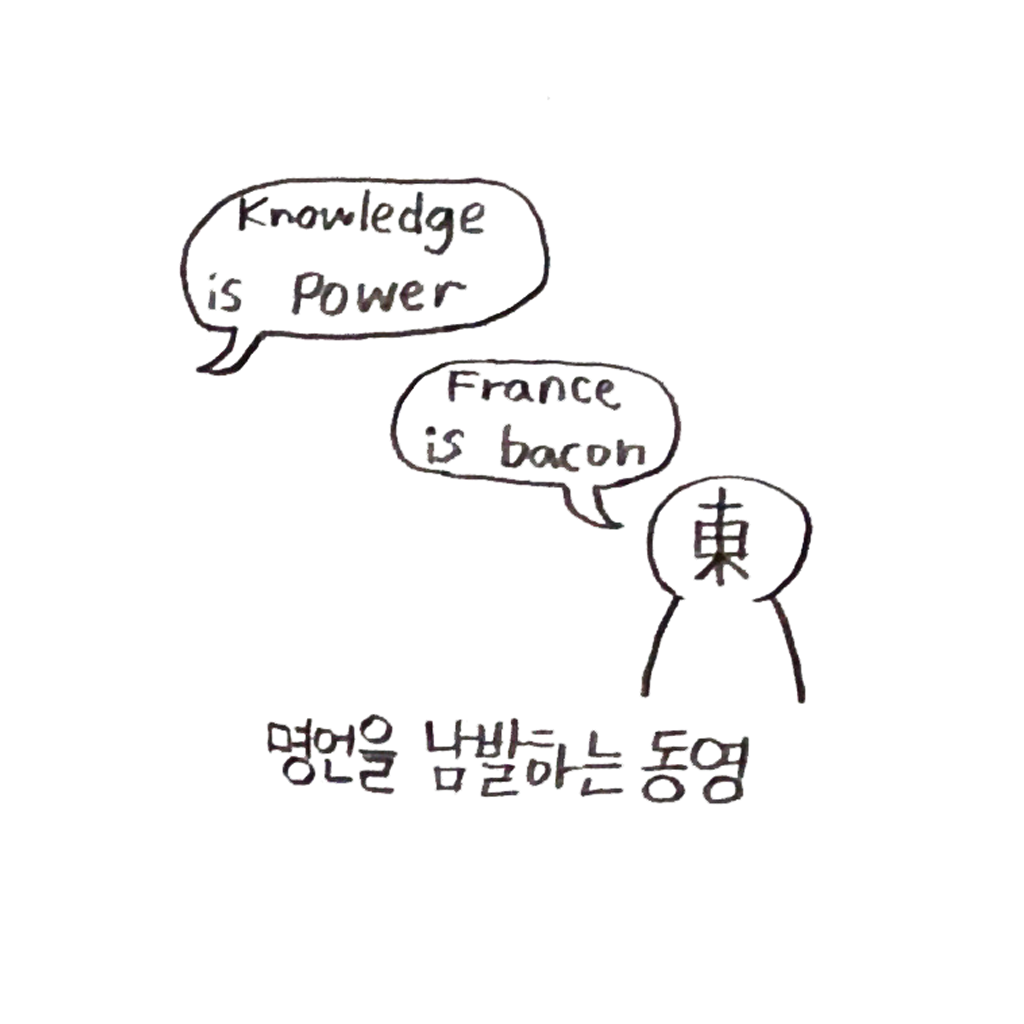 Knowledge
is Power
France
is bacon
東
명언을 남발하는 동영